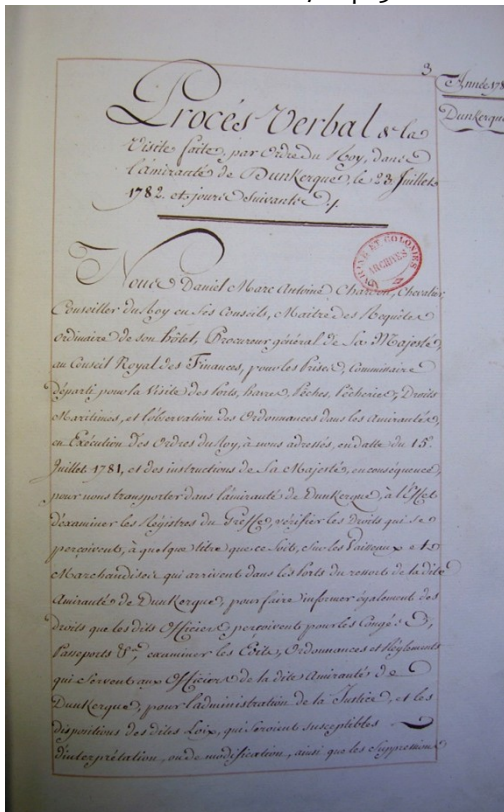 3
Année 178
Dunkerque
Procés Verbal de la
Visite faite, par Ordre du Roy, dans
l'amirauté de Dunkerque, le 23 Juillet
1782. et jours Suivants
MARINE ET COLONIES
ARCHIVES
Nous Daniel Marc Antoine Chardon, Chevalier,
Conseiller du Roy en Ses Conseils, Maître des Requêtes
Ordinaire de son hôtel, Procureur général de Sa Majesté,
au Conseil Royal des Finances, pour les Prises, Commissaire
départi pour la Visite des Ports, havres, Pêches, Pêcheries, Droits
Maritimes, et l'observation des Ordonnances dans les Amirautés,
en Exécution des Ordres du Roy, à nous adressés, en datte du 15
Juillet 1781, et des instructions de Sa Majesté, en conséquence,
pour nous transporter dans l'amirauté de Dunkerque, à l'Effet
d'examiner les Régistres du Greffe, vérifier les droits qui se
perçoivent, à quelque titre que ce Soit, Sur les Vaisseaux et
Marchandises qui arrivent dans les Ports du ressort de la dite
Amirauté de Dunkerque, pour faire informer également des
droits que les dits Officiers perçoivent pour les Congés,
Passeports &ca, examiner les Edits, Ordonnances et Réglements
qui Servent aux Officiers de la dite Amirauté de
Dunkerque, pour l'administration de la Justice, et les
dispositions des dites Loix, qui Seroient susceptibles
d'interprétation, ou de modification, ainsi que les Suppressions